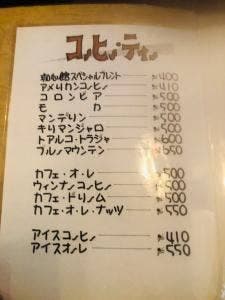 コーヒー・ティー
スペシャルブレンド 400
アメリカンコーヒー 410
コロンビア 500
モカ 500
マンデリン 500
キリマンジャロ 500
トアルコ・トラジャ 600
ブルーマウンテン 650
カフェ・オ・レ 500
ウィンナーコーヒー 500
カフェ・ドリーム 500
カフェ・オ・レ・ナッツ 550
アイスコーヒー 410
アイスオーレ 550